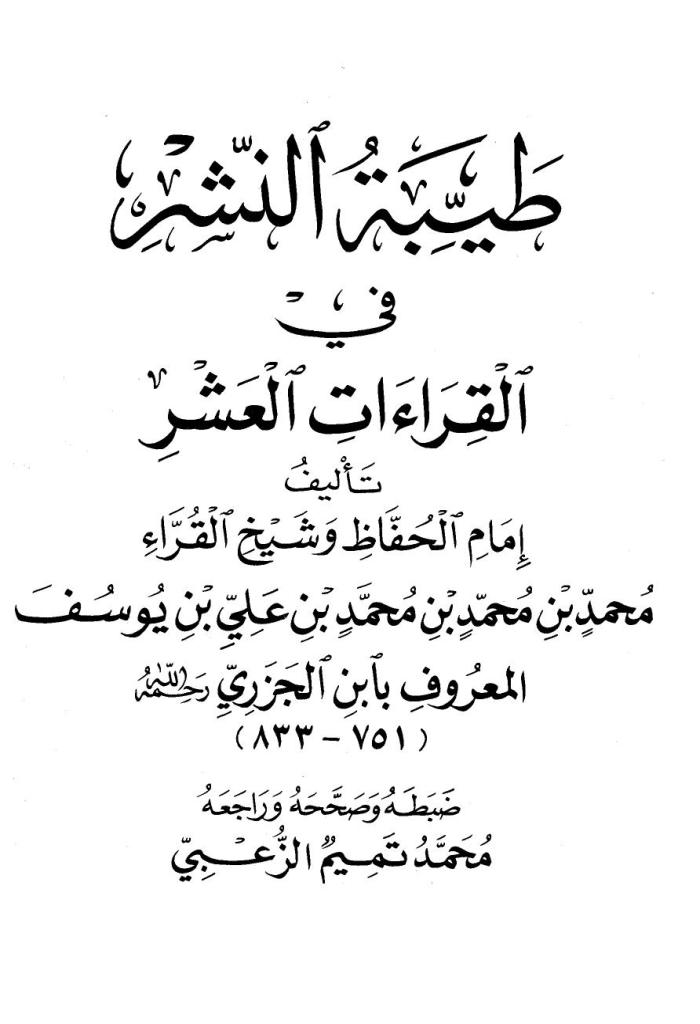 طَيِّبَةُ ٱلنَّشْرِ
فِي
ٱلْقِرَاءَاتِ ٱلْعَشْرِ
تَأْلِيفُ
إِمَامِ ٱلْحُفَّاظِ وَشَيْخِ ٱلْقُرَّاءِ
مُحمدِّ بْنِ مُحمّدٍ بْنِ مُحمَّدٍ بْنِ عَلِيِّ بْنِ يُوسُفَ
المعرُوفِ بِٱبنِ ٱلجَزَرِيِّ رَحِمَهُ اللَّهُ
(٧٥١ - ٨٣٣)
ضَبَطَهُ وَصَحَّحَهُ وَرَاجَعَهُ
مُحَمَّدُ تَمِيمُ الزُّعْبِيّ